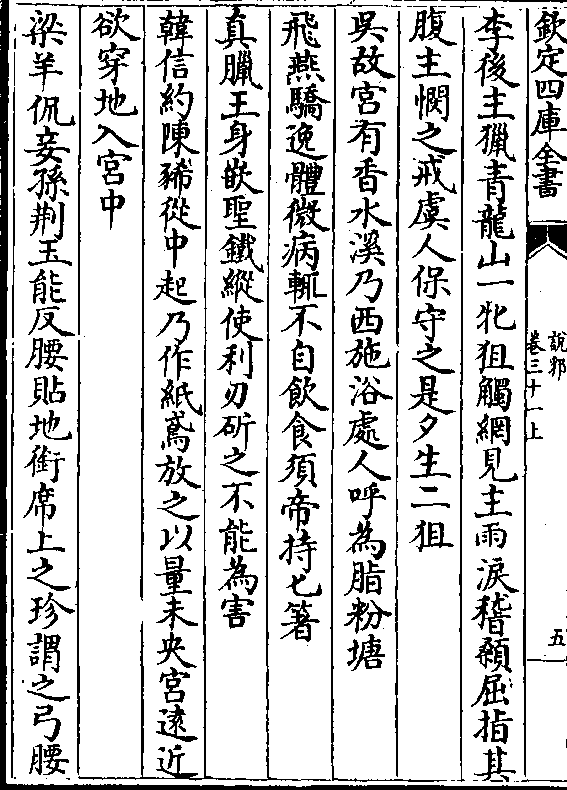 欽定四庫全書
説郛
卷三十一上
五
李後主獵青龍山一牝狙觸網見主雨淚稽顙屈指其
腹主憫之戒虞人保守之是夕生二狙
吳故宮有香水溪乃西施浴處人呼為脂粉塘
飛燕驕逸體微病輒不自飲食須帝持匕箸
真臘王身嵌聖鐵縱使利刃斫之不能為害
韓信約陳豨從中起乃作紙鳶放之以量未央宮遠近
欲穿地入宮中
梁羊侃妾孫荆玉能反腰貼地銜席上之珍謂之弓腰